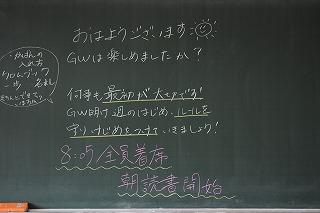 おはようございます
GWは楽しめましたか？
何事も最初が大切です！
GW明け週のはじめ、ルールを
守りけじめをつけていきましょう！
8:05 全員着席
朝読書開始
かばんの
入れ方
クロムブック
名札